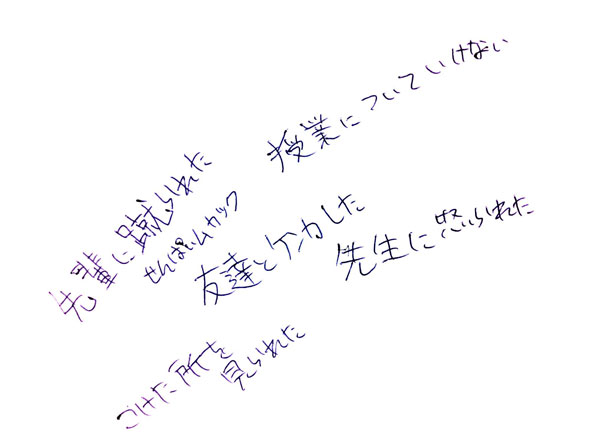 授業についていけない
先輩に蹴られた
せんぱいムカック
友達とケンカした
先生に怒られた
こけた所を
見られた